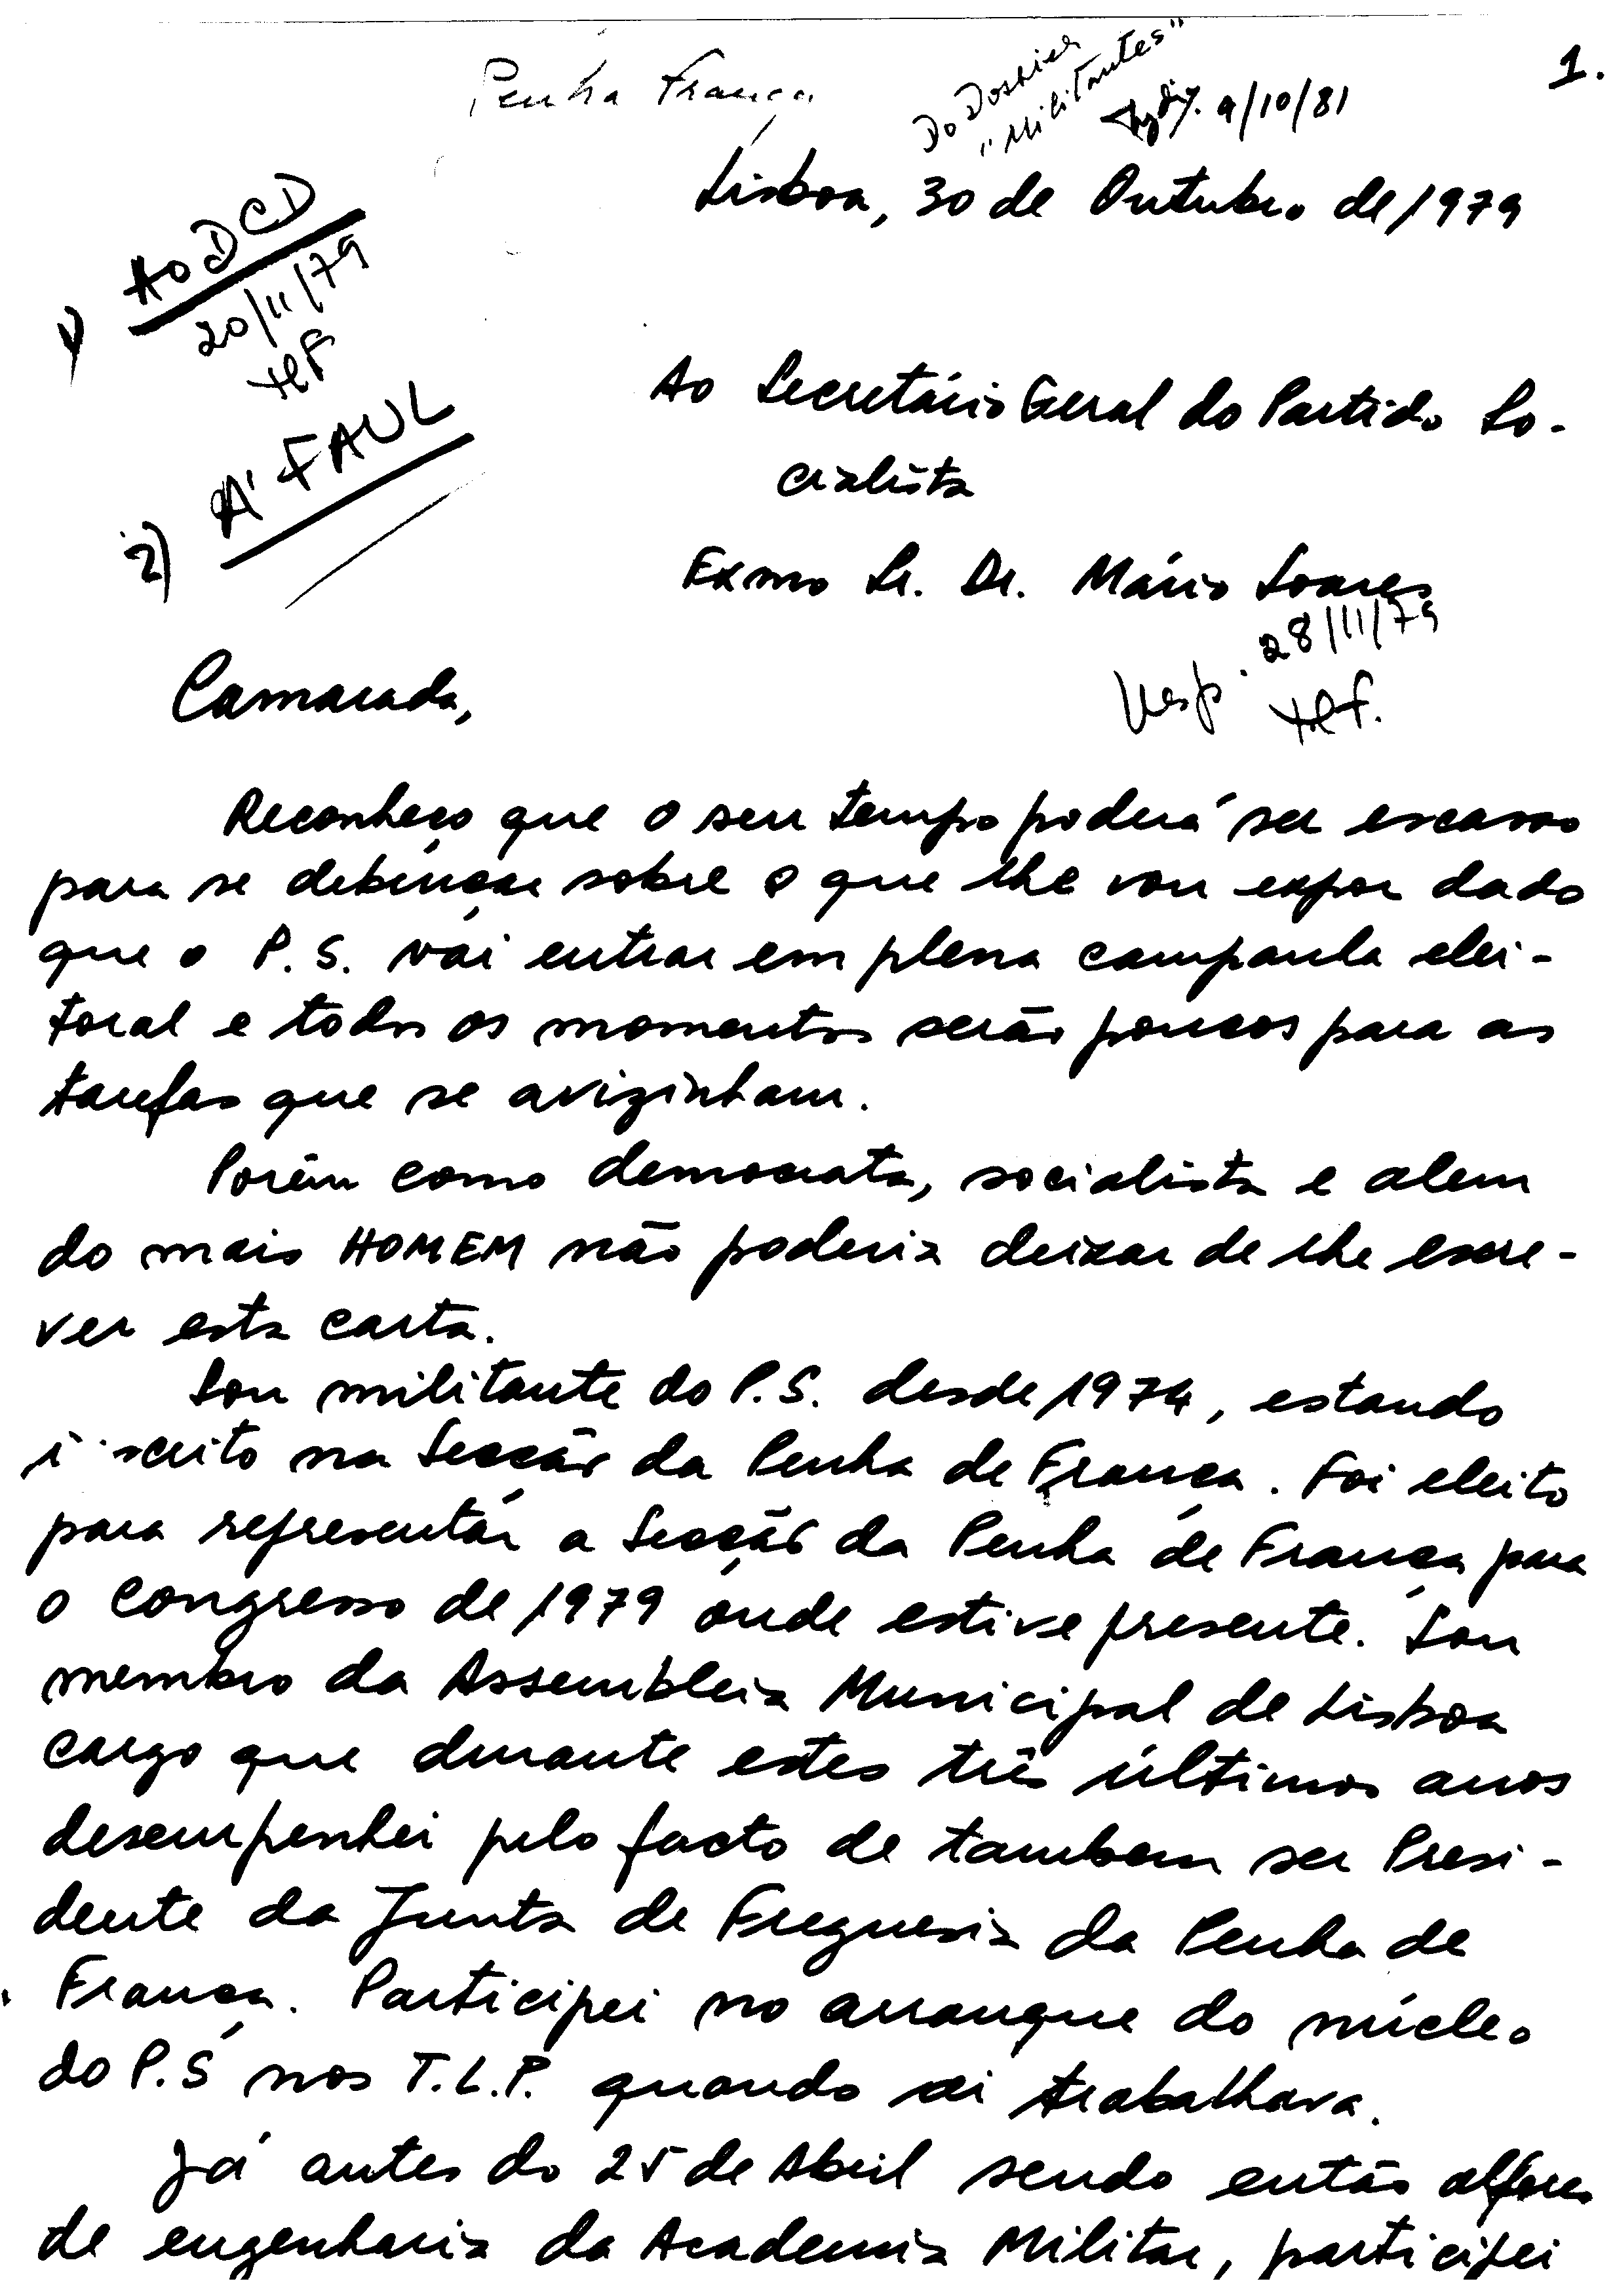 1.
Penha França
Do Dossier
"Militantes"
9/10/81
Lisboa, 30 de Outubro de 1979
1) Ao DCD
20/11/79
2) A' FAUL
Ao Secretário Geral do Partido So-
cialista
Exmo Sr. Dr. Mário Soares
Resp. 28/11/79
Camarada,
Reconheço que o seu tempo poderá ser escasso
para se debruçar sobre o que lhe vou expor dado
que o P.S. vai entrar em plena campanha elei-
toral e todos os momentos serão poucos para as
tarefas que se avizinham.
Porém como democrata, socialista e alem
do mais HOMEM não poderia deixar de lhe escre-
ver esta carta.
Sou militante do P.S. desde 1974, estando
i scrito na Secção da Penha de França. Foi eleito
para representar a Secção da Penha de França para
o Congresso de 1979 onde estive presente. Sou
membro da Assembleia Municipal de Lisboa
cargo que durante estes três últimos anos
desempenhei pelo facto de tambem ser Presi-
dente da Junta de Freguesia da Penha de
França. Participei no arranque do núcleo
do P.S nos T.L.P. quando ai trabalhava.
Já antes do 25 de Abril sendo então alferes
de engenharia da Academia Militar, participei